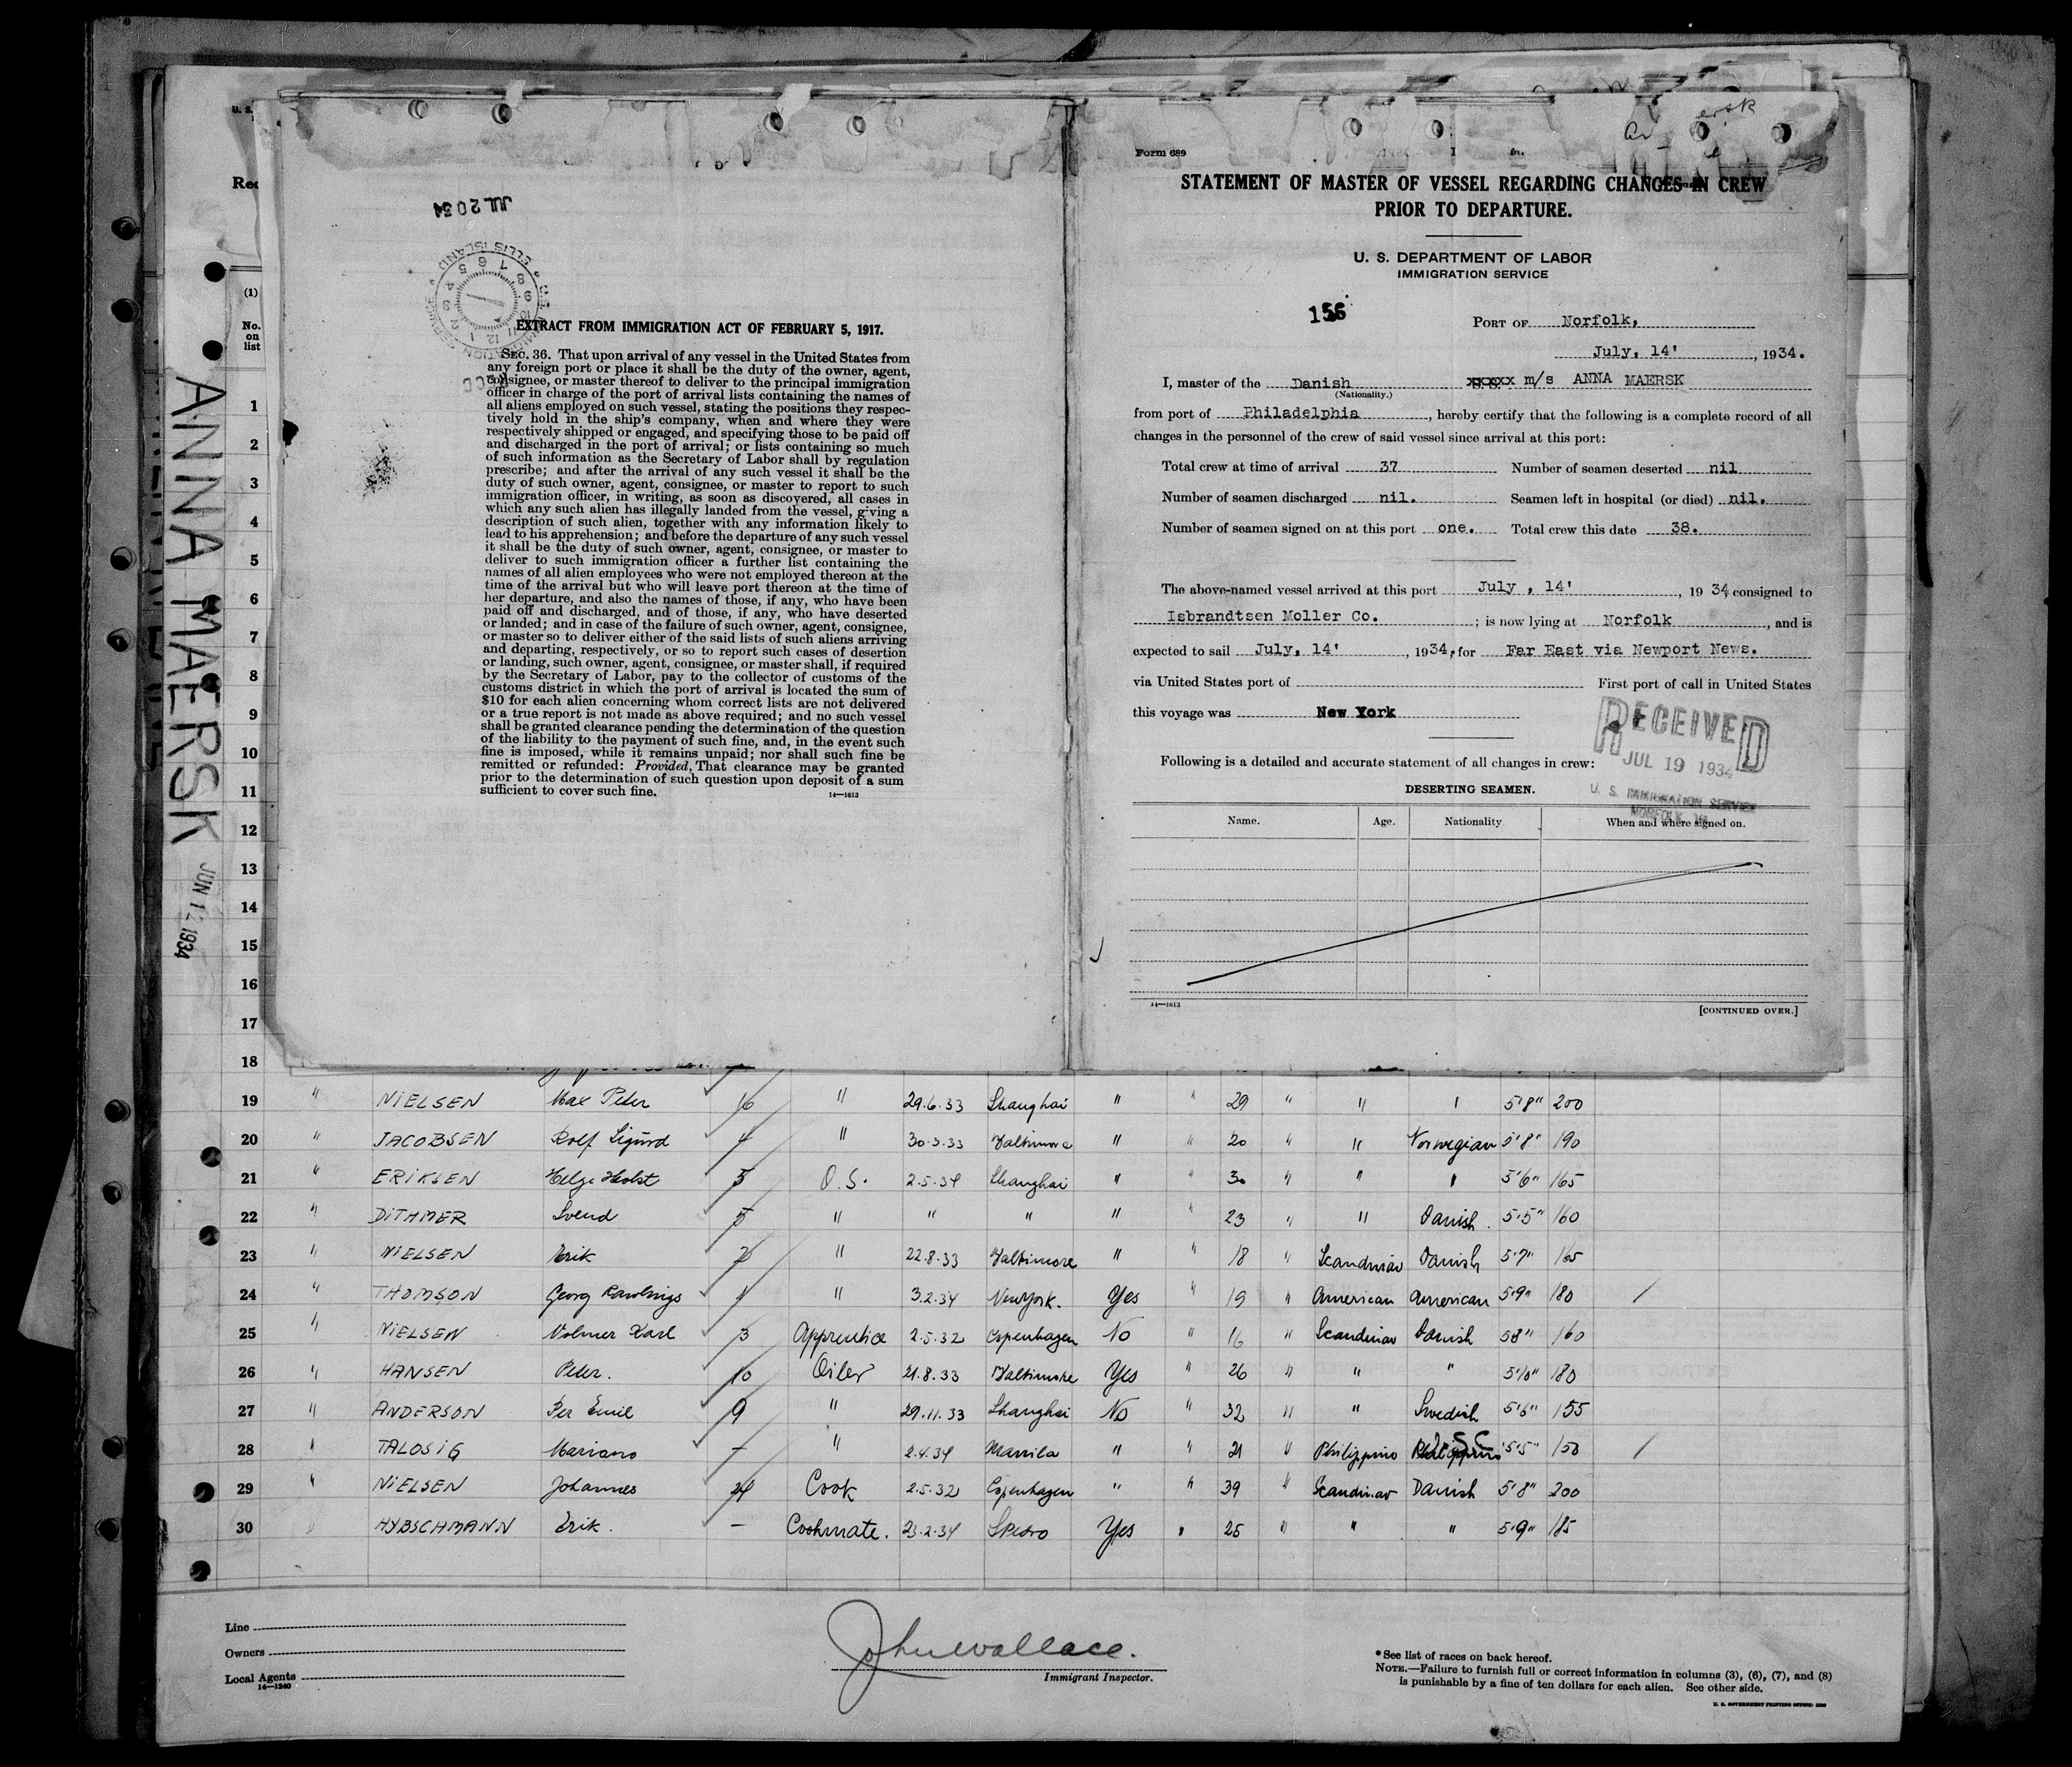 U. S.
Rec
(1)
No.
on
list
ANNA MAERSK
JUN 12 1934
JUL 20 34
U.S. IMMIGRATION SERVICE
ELLIS ISLAND
EXTRACT FROM IMMIGRATION ACT OF FEBRUARY 5, 1917.
SEC. 36. That upon arrival of any vessel in the United States from
any foreign port or place it shall be the duty of the owner, agent,
consignee, or master thereof to deliver to the principal immigration
officer in charge of the port of arrival lists containing the names of
all aliens employed on such vessel, stating the positions they respec-
tively hold in the ship's company, when and where they were
respectively shipped or engaged, and specifying those to be paid off
and discharged in the port of arrival; or lists containing so much
of such information as the Secretary of Labor shall by regulation
prescribe; and after the arrival of any such vessel it shall be the
duty of such owner, agent, consignee, or master to report to such
immigration officer, in writing, as soon as discovered, all cases in
which any such alien has illegally landed from the vessel, giving a
description of such alien, together with any information likely to
lead to his apprehension; and before the departure of any such vessel
it shall be the duty of such owner, agent, consignee, or master to
deliver to such immigration officer a further list containing the
names of all alien employees who were not employed thereon at the
time of the arrival but who will leave port thereon at the time of
her departure, and also the names of those, if any, who have been
paid off and discharged, and of those, if any, who have deserted
or landed; and in case of the failure of such owner, agent, consignee,
or master so to deliver either of the said lists of such aliens arriving
and departing, respectively, or so to report such cases of desertion
or landing, such owner, agent, consignee, or master shall, if required
by the Secretary of Labor, pay to the collector of customs of the
customs district in which the port of arrival is located the sum of
$10 for each alien concerning whom correct lists are not delivered
or a true report is not made as above required; and no such vessel
shall be granted clearance pending the determination of the question
of the liability to the payment of such fine, and, in the event such
fine is imposed, while it remains unpaid; nor shall such fine be
remitted or refunded: Provided, That clearance may be granted
prior to the determination of such question upon deposit of a sum
sufficient to cover such fine.
14—1613
Form 689
STATEMENT OF MASTER OF VESSEL REGARDING CHANGES IN CREW
PRIOR TO DEPARTURE.
U. S. DEPARTMENT OF LABOR
IMMIGRATION SERVICE
156
PORT OF Norfolk,
July, 14' , 1934.
I, master of the Danish xxxxx m/s ANNA MAERSK
(Nationality.)
from port of Philadelphia , hereby certify that the following is a complete record of all
changes in the personnel of the crew of said vessel since arrival at this port:
Total crew at time of arrival 37 Number of seamen deserted nil
Number of seamen discharged nil. Seamen left in hospital (or died) nil.
Number of seamen signed on at this port one. Total crew this date 38.
The above-named vessel arrived at this port July , 14' , 19 34, consigned to
Isbrandtsen Moller Co. ; is now lying at Norfolk , and is
expected to sail July, 14' , 1934, for Far East via Newport News.
via United States port of First port of call in United States
this voyage was New York
RECEIVED
JUL 19 1934
U. S. IMMIGRATION SERVICE
NORFOLK, VA.
Following is a detailed and accurate statement of all changes in crew:
DESERTING SEAMEN.
Name. Age. Nationality When and where signed on.
14—1613
[CONTINUED OVER.]
1
2
3
4
5
6
7
8
9
10
11
12
13
14
15
16
17
18
19 " NIELSEN Max Peter 16 " 29.6.33 Shanghai " " 29 " " " 5'8" 200
20 " JACOBSEN Rolf Sigurd 4 " 30.3.33 Baltimore " " 20 " " Norwegian 5'8" 190
21 " ERIKSEN Helge Holst 5 O.S. 2.5.34 Shanghai " " 30 " " " 5'6" 165
22 " DITHMER Svend 5 " " " " " 23 " " Danish. 5'5" 160
23 " NIELSEN Erik 2 " 22.8.33 Baltimore " " 18 " Scandinav Danish 5'7" 165
24 " THOMSON Georg Rawlings 1 " 3.2.34 New York. Yes " 19 " American American 5'9" 180 /
25 " NIELSEN Volmer Karl 3 Apprentice 2.5.32 Copenhagen No " 16 " Scandinav Danish 5'8" 160
26 " HANSEN Peter. 10 Oiler 21.8.33 Baltimore Yes " 26 " " " 5'10" 180
27 " ANDERSON Per Emil 9 " 29.11.33 Shanghai No " 32 " " Swedish 5'6" 155
28 " TALOSIG Mariano – " 2.4.34 Manila " " 21 " Philippino Philippino 5'5" 150 /
29 " NIELSEN Johannes 24 Cook 2.5.32 Copenhagen " " 39 " Scandinav Danish 5'8" 200
30 " HYBSCHMANN Erik. – Cookmate. 23.2.34 S Pedro Yes " 25 " " " 5'9" 185
Line
Owners
Local Agents
14—1240
John Wallace.
Immigrant Inspector.
* See list of races on back hereof.
NOTE.—Failure to furnish full or correct information in columns (3), (6), (7), and (8)
is punishable by a fine of ten dollars for each alien. See other side.
U. S. GOVERNMENT PRINTING OFFICE: 1930